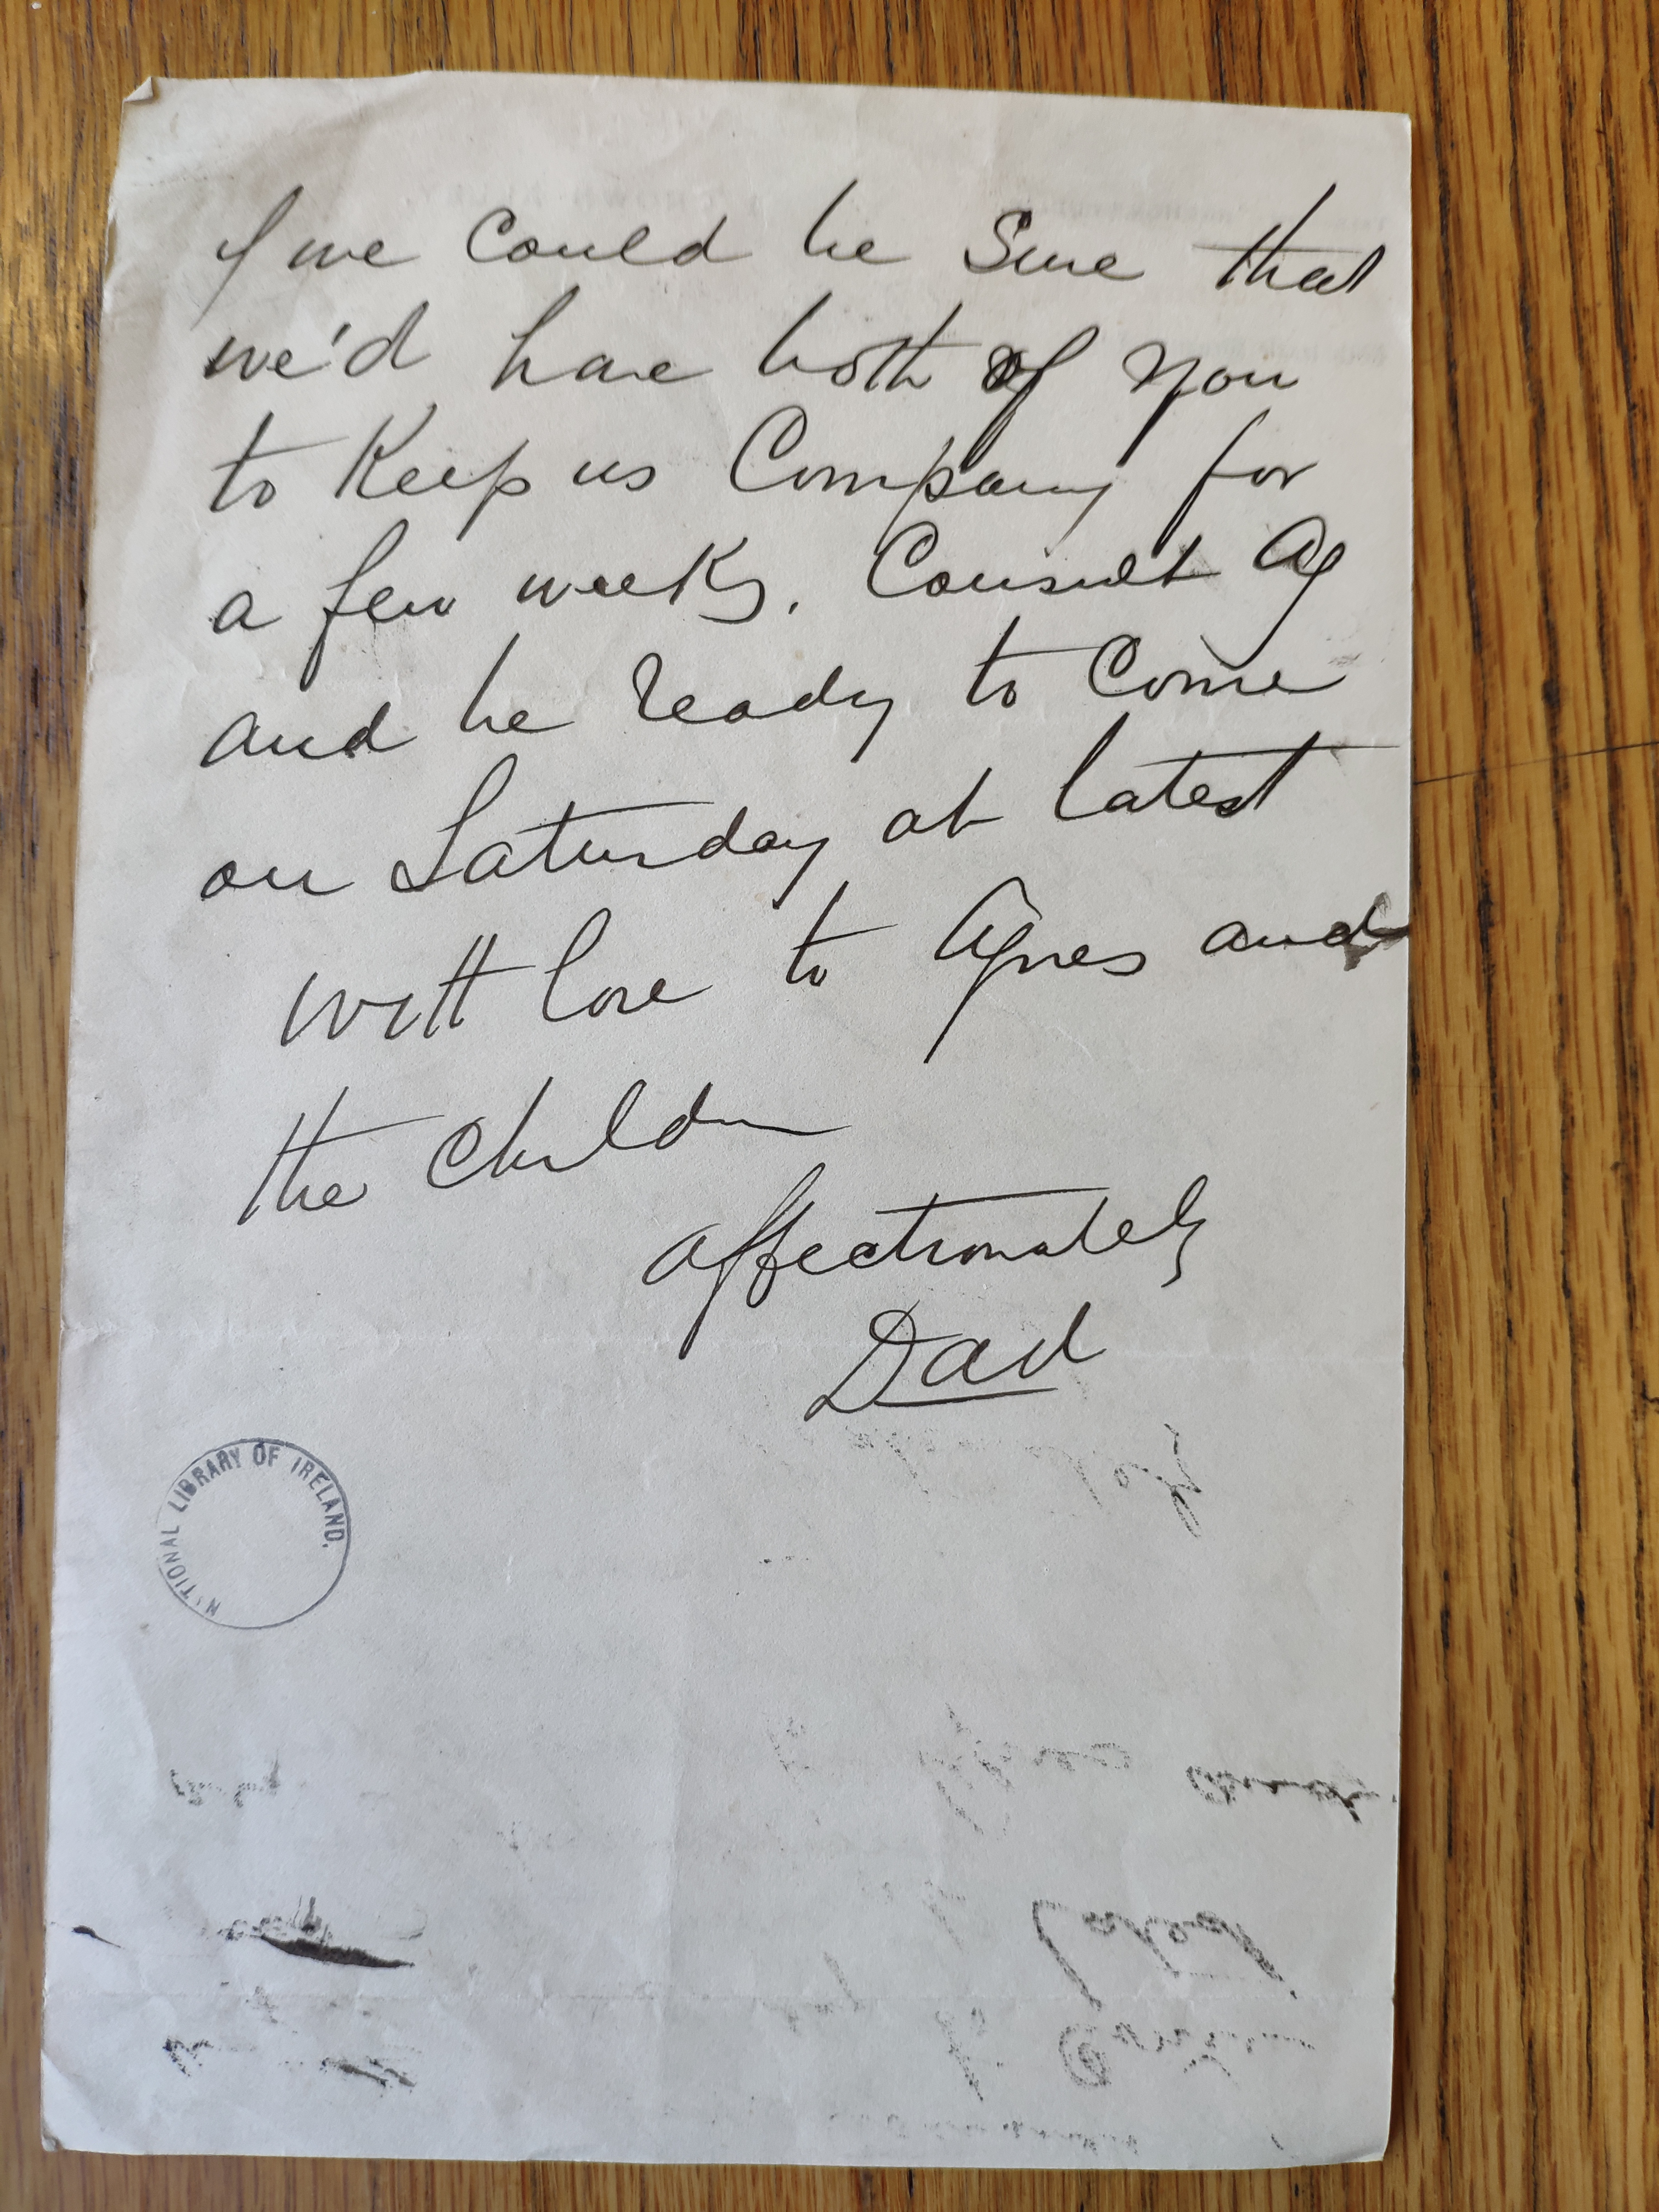 if we could be sure that
we'd have both of you
to Keep us Company for
a few weeks. Consult Ag
and be ready to Come
on Saturday at latest
With love to Agnes and
the Children
affectionately
Dad
NATIONAL LIBRARY OF IRELAND.